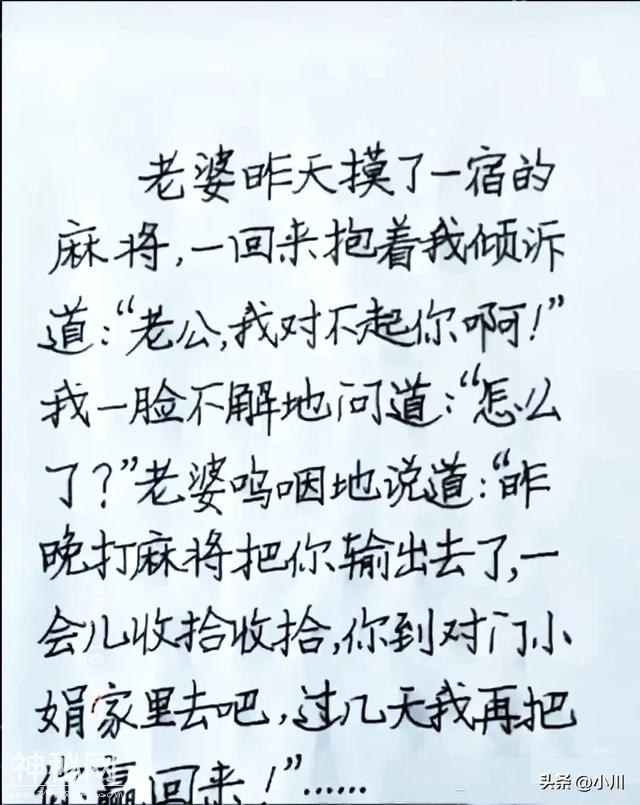 老婆昨天摸了一宿的
麻将,一回来抱着我倾诉
道:“老公,我对不起你啊!”
我一脸不解地问道:“怎么
了?”老婆呜咽地说道:“昨
晚打麻将把你输出去了,一
会儿收拾收拾,你到对门小
娟家里去吧,过几天我再把
你赢回来!”……
神秘网
头条 @小川